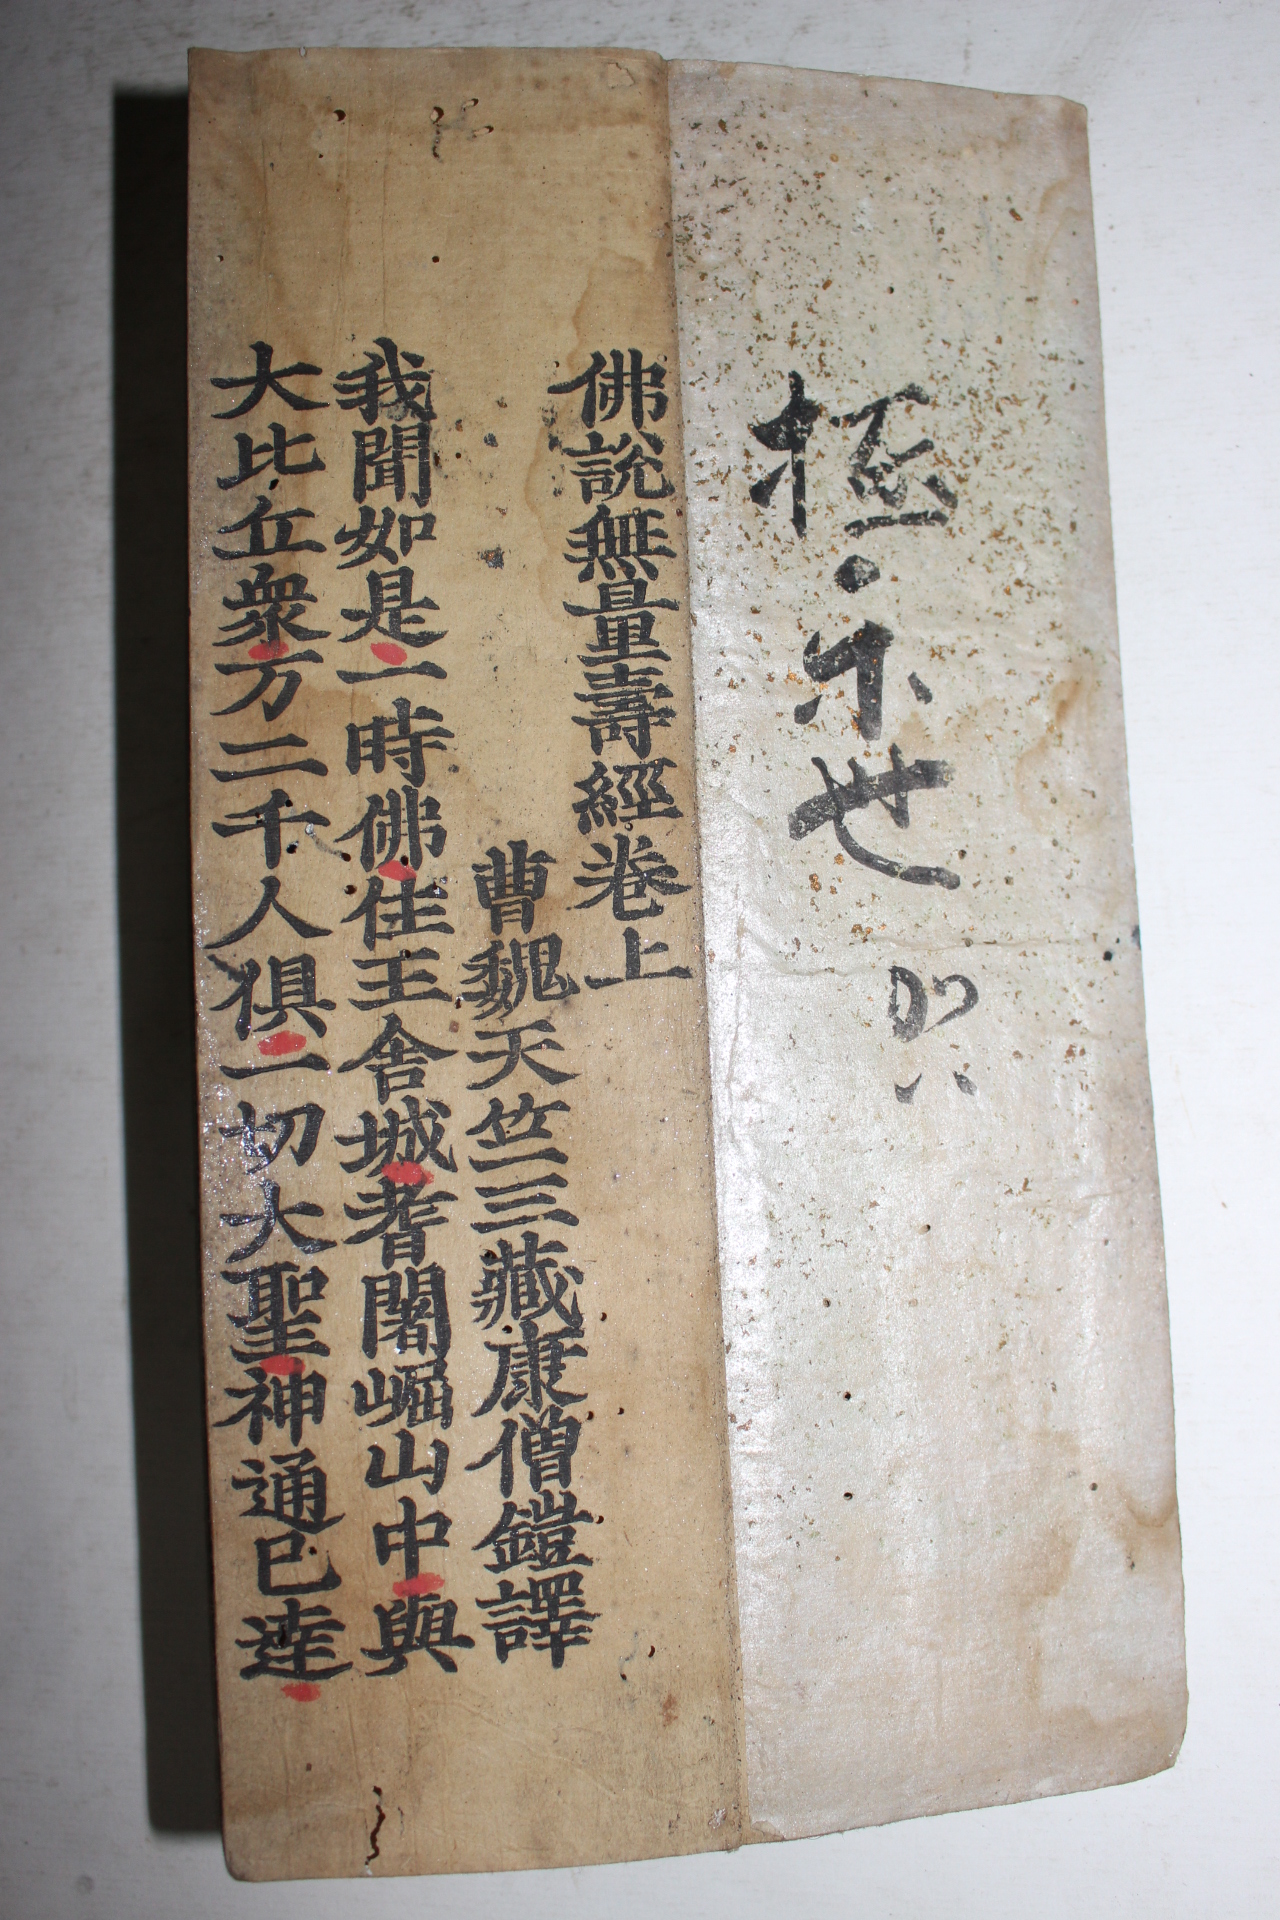 極樂世界
佛説無量壽經卷上
曹魏天竺三藏康僧鎧譯
我聞如是一時佛住王舍城耆闍崛山中與
大比丘衆万二千人俱一切大聖神通已達